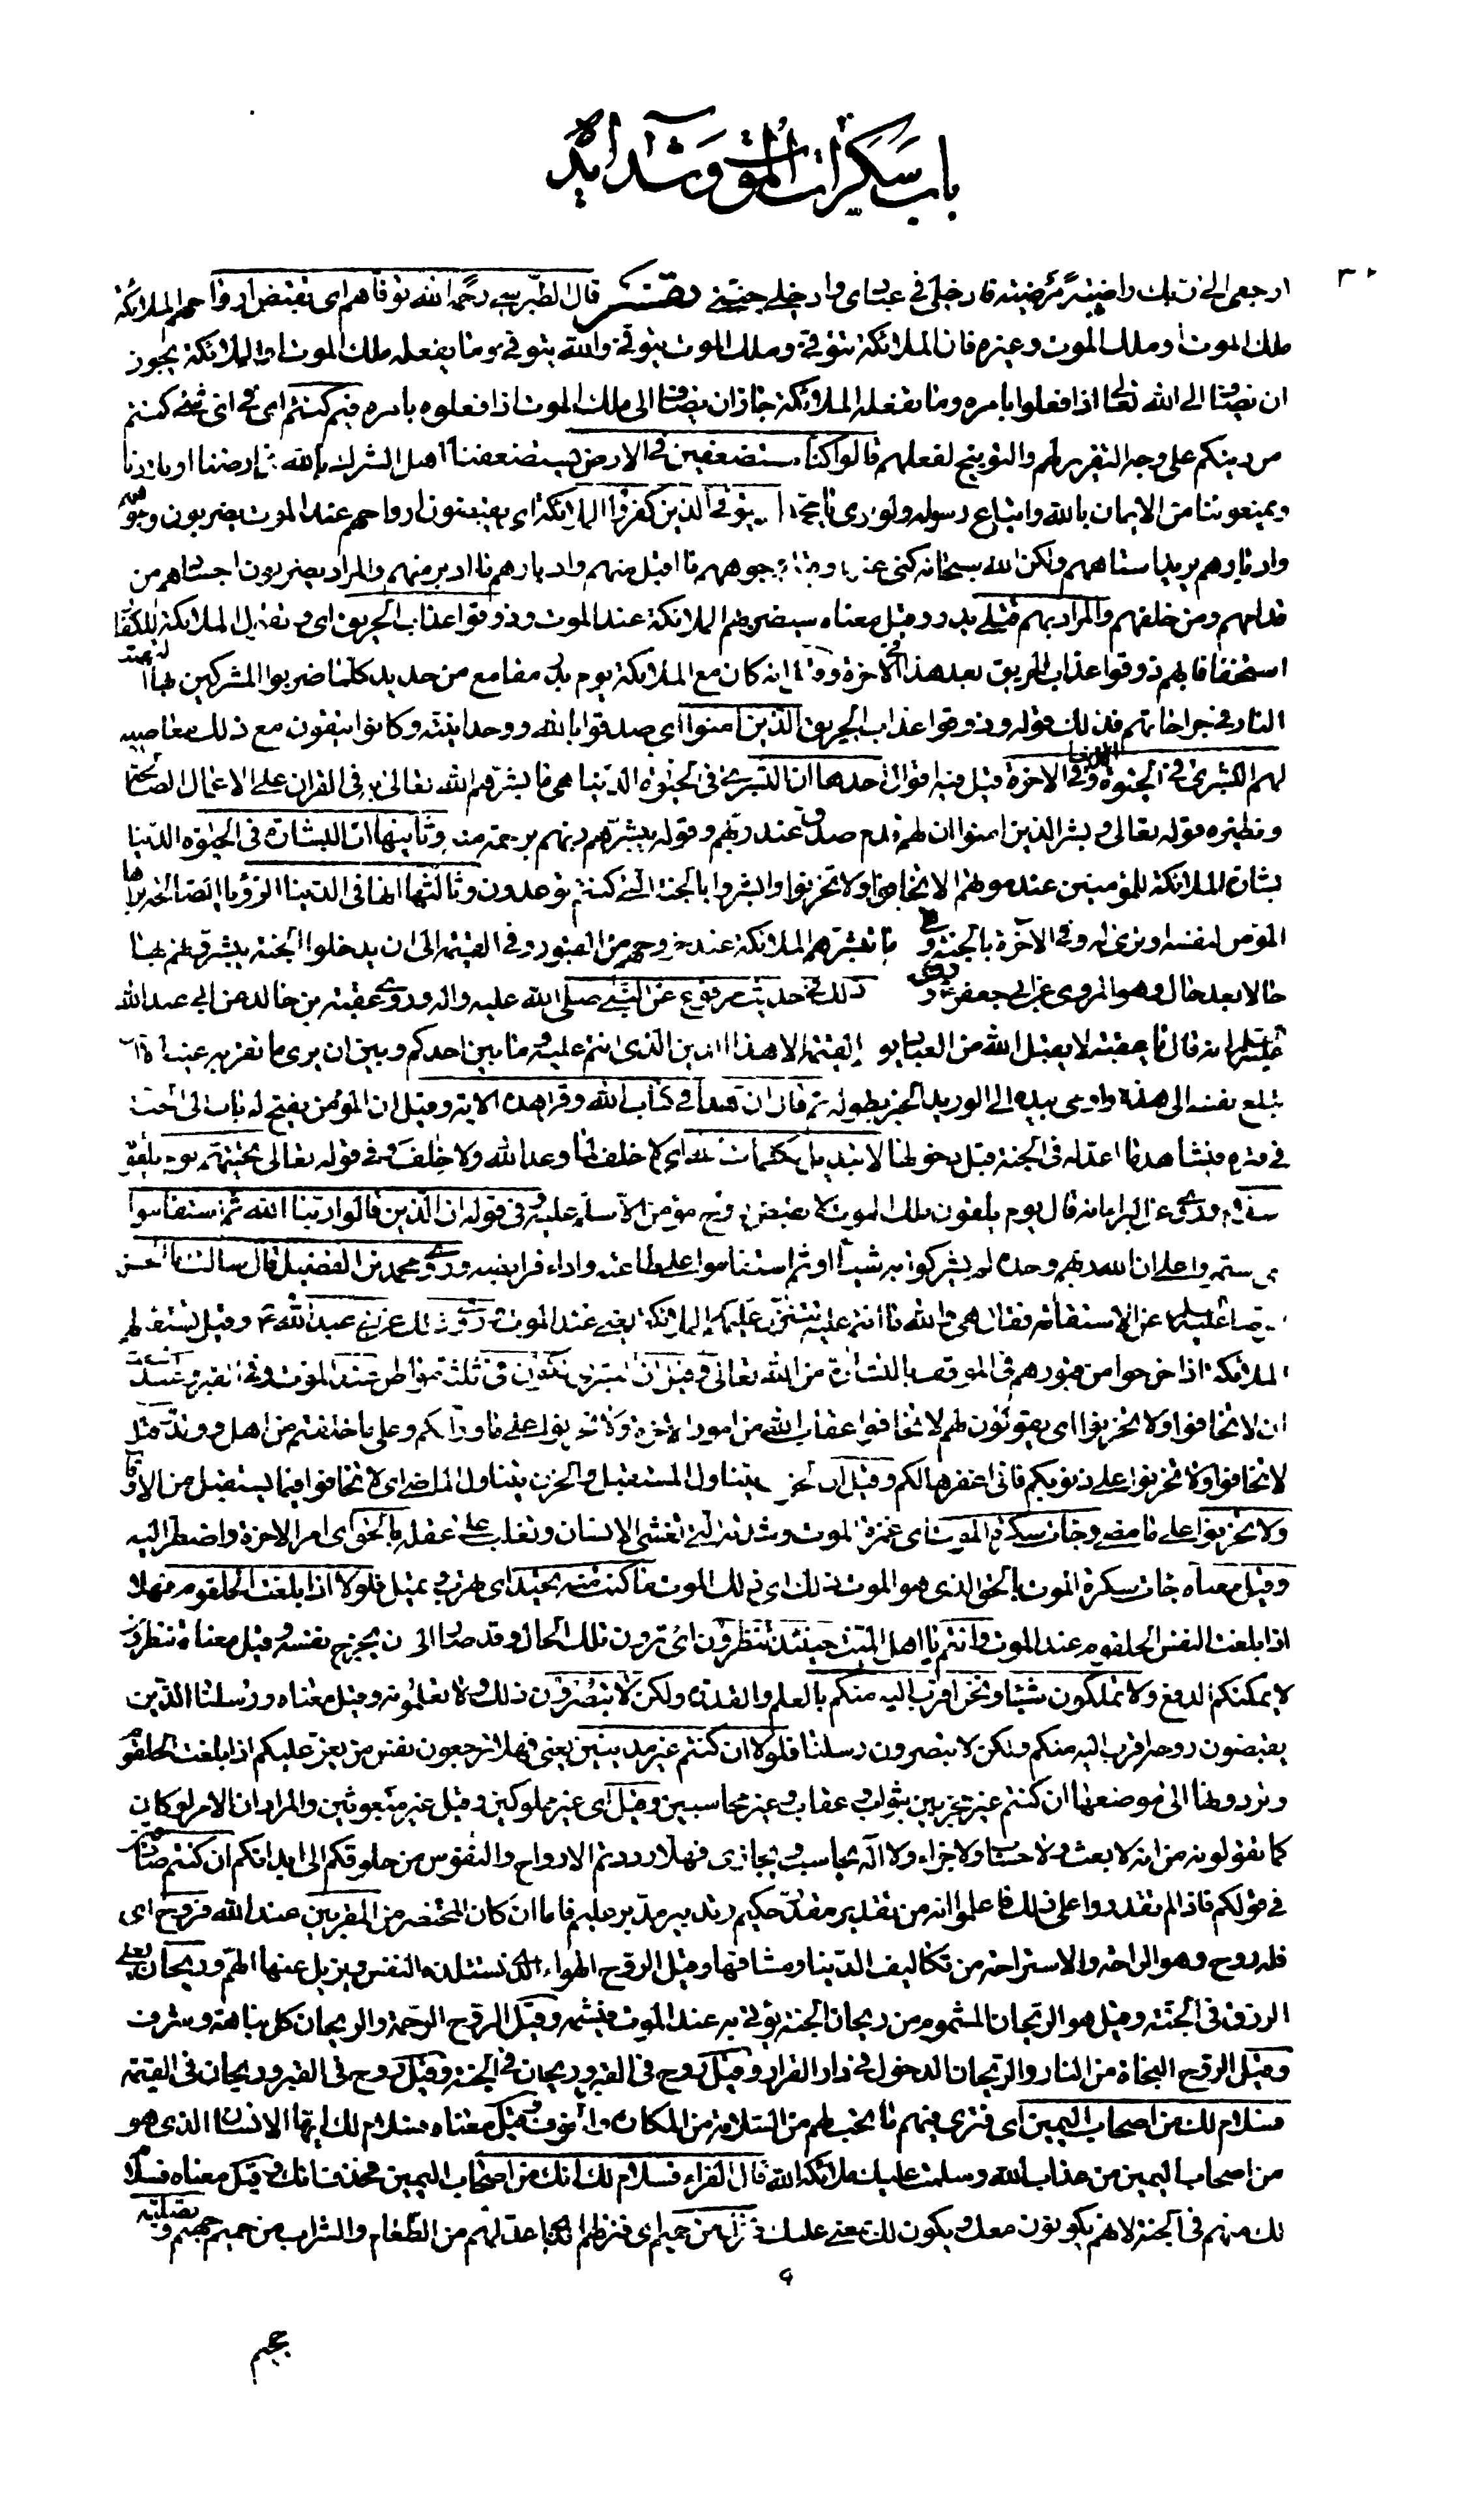 باب سكرات الموت وشدايده
٣٠
ارجعي الى ربك راضية مرضية فادخلي في عبادي وادخلي جنتي تفسير قال الطبرسي رحمه الله توفاهم اى تقبض ارواحهم الملائكة
ملك الموت او ملك الموت وغيره فان الملائكة تتوفى وملك الموت يتوفى والله يتوفى وما يفعله ملك الموت او الملائكة يجوز
ان يضاف الى الله تعالى اذا فعلوا بامره وما تفعله الملائكة جاز ان يضاف الى ملك الموت اذا فعلوه بامره فيم كنتم اى في اى شئ كنتم
من دينكم على وجه التقرير لهم والتوبيخ لفعلهم قالوا كنا مستضعفين في الارض يستضعفنا اهل الشرك بالله في ارضنا وبلادنا
ويمنعوننا من الايمان بالله واتباع رسوله ولو ترى يا محمد اذ يتوفى الذين كفروا الملائكة اى يقبضون ارواحهم عند الموت يضربون وجوههم
وادبارهم يريد استاههم ولكن الله سبحانه كنى عنها وقيل وجوههم ما اقبل منهم وادبارهم ما ادبر منهم والمراد يضربون اجسادهم من
قدامهم ومن خلفهم والمراد بهم قتلى بدر وقيل معناه سيضربهم الملائكة عند الموت وذوقوا عذاب الحريق اى وتقول الملائكة للكفار
استخفافا بهم ذوقوا عذاب الحريق بعد هذا في الاخرة وقيل انه كان مع الملائكة يوم بدر مقامع من حديد كلما ضربوا المشركين بها التهبت
النار في جراحاتهم فذلك قوله وذوقوا عذاب الحريق الذين امنوا اى صدقوا بالله ووحدانيته وكانوا يتقون مع ذلك معاصيه
لهم البشرى في الحيوة الدنيا وفي الاخرة قيل فيه اقوال احدها ان البشرى في الحيوة الدنيا هي ما بشرهم الله تعالى به في القران على الاعمال الصالحة
ونظيره قوله تعالى وبشر الذين امنوا ان لهم قدم صدق عند ربهم وقوله يبشرهم ربهم برحمة منه وثانيها ان البشارة في الحيوة الدنيا
بشارة الملائكة للمؤمنين عند موتهم الا تخافوا ولا تحزنوا وابشروا بالجنة التي كنتم توعدون وثالثها انها في الدنيا الرؤيا الصالحة يراها
المؤمن لنفسه او ترى له وفي الآخرة بالجنة وهي ما تبشرهم الملائكة عند خروجهم من القبور وفي القيمة الى ان يدخلوا الجنة يبشرونهم بها
حالا بعد حال وهو المروى عن ابي جعفر ع وروى ذلك في حديث مرفوع عن النبي صلى الله عليه واله وروى عقبة بن خالد عن ابي عبد الله
عليه السلم انه قال يا عقبة لا يقبل الله من العباد يوم القيمة الا هذا الدين الذى انتم عليه وما بين احدكم وبين ان يرى ما تقر به عينه الا ان
يبلغ نفسه الى هذه واومى بيده الى الوريد الخبر بطوله ثم قال ان هذا في كتاب الله وقرا هذه الاية وقيل ان المؤمن يفتح له باب الى الجنة
في قبره فيشاهد ما اعد له في الجنة قبل دخولها لا تبديل لكلمات الله اى لا خلف لما وعد الله ولا خلف في قوله تعالى تحيتهم يوم يلقونه
سلام روى عن البراء انه قال يوم يلقون ملك الموت لا يقبض روح مؤمن الا سلم عليه وفي قوله ان الذين قالوا ربنا الله ثم استقاموا
اى استمروا على ان الله ربهم وحده لم يشركوا به شيئا او ثم استقاموا على طاعته واداء فرايضه وروى محمد بن الفضيل قال سالت ابا الحسن
الرضا عليه السلم عن الاستقامة فقال هي والله ما انتم عليه تتنزل عليهم الملائكة يعنى عند الموت روى ذلك عن ابي عبد الله ع وقيل تستقبلهم
الملائكة اذا خرجوا من قبورهم في الموقف بالبشارة من الله تعالى وقيل ان البشرى تكون في ثلثة مواطن عند الموت وفي القبر وعند البعث
ان لا تخافوا ولا تحزنوا اى يقولون لهم لا تخافوا عقاب الله من امور الاخرة ولا تحزنوا على ما وراءكم وعلى ما خلفتم من اهل وولد وقيل
لا تخافوا ولا تحزنوا على ذنوبكم فاني اغفرها لكم وقيل ان الخوف يتناول المستقبل والحزن يتناول الماضى اى لا تخافوا فيما يستقبل من الاوقات
ولا تحزنوا على ما مضى وجاءت سكرة الموت اى غمرة الموت وشدته التي تغشى الانسان وتغلب على عقله بالحق اى امر الاخرة واضطر اليه
وقيل معناه جاءت سكرة الموت بالحق الذى هو الموت ذلك اى ذلك الموت ما كنت منه تحيد اى تهرب وتميل فلولا اذا بلغت الحلقوم فهلا
اذا بلغت النفس الحلقوم عند الموت وانتم يا اهل الميت حينئذ تنظرون اى ترون تلك الحال وقد صار الى ان يخرج نفسه وقيل معناه تنظرون
لا يمكنكم الدفع ولا تملكون شيئا ونحن اقرب اليه منكم بالعلم والقدرة ولكن لا تبصرون ذلك ولا تعلمونه وقيل معناه ورسلنا الذين
يقبضون روحه اقرب اليه منكم ولكن لا تبصرون رسلنا فلولا ان كنتم غير مدينين يعنى فهلا ترجعون نفس من يعز عليكم اذا بلغت الحلقوم
وتردونها الى موضعها ان كنتم غير مجزيين بثواب وعقاب وغير محاسبين وقيل اى غير مملوكين وقيل غير مبعوثين والمراد ان الامر لو كان
كما تقولونه من انه لا بعث ولا حساب ولا جزاء ولا اله يحاسب ويجازى فهلا رددتم الارواح والنفوس من حلوقكم الى ابدانكم ان كنتم صادقين
في قولكم فاذا لم تقدروا على ذلك فاعلموا انه من تقدير مقدر حكيم وتدبير مدبر عليم فاما ان كان المحتضر من المقربين عند الله فروح اى
فله روح وهو الراحة والاستراحة من تكاليف الدنيا ومشاقها وقيل الروح الهواء الذي تستلذه النفس ويزيل عنها الهم وريحان يعنى
الرزق في الجنة وقيل هو الريحان المشموم من ريحان الجنة يؤتى به عند الموت فيشمه وقيل الروح الرحمة والريحان كل نباهة وشرف
وقيل الروح النجاة من النار والريحان الدخول في دار القرار وقيل روح في القبر وريحان في الجنة وقيل روح في القبر وريحان في القيمة
فسلام لك من اصحاب اليمين اى فترى فيهم ما تحب لهم من السلامة من المكاره والخوف وقيل معناه فسلام لك ايها الانسان الذى هو
من اصحاب اليمين من عذاب الله وسلمت عليك ملائكة الله قال الفراء فسلام لك انك من اصحاب اليمين فحذف انك وقيل معناه فسلام
لك منهم في الجنة لانهم يكونون معك ويكون لك بمعنى عليك فنزل من حميم اى فنزلهم الذى اعد لهم من الطعام والشراب من حميم جهنم وتصلية
جحيم